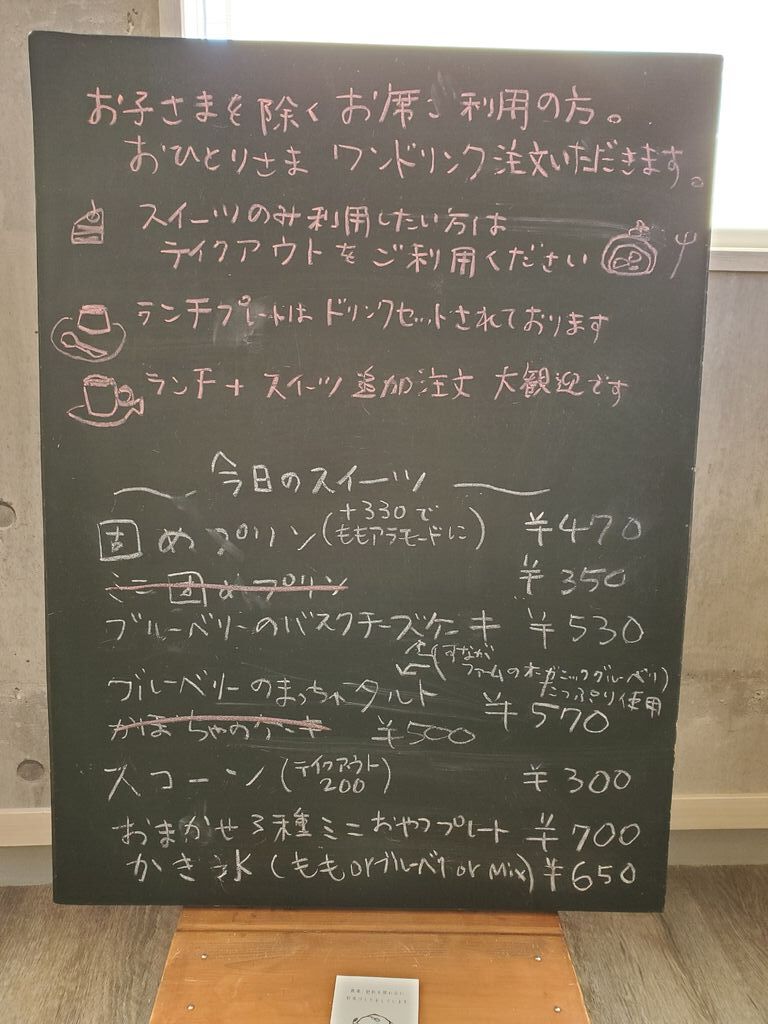 お子さまを除くお席ご利用の方。
おひとりさま ワンドリンク注文いただきます。
スイーツのみ利用したい方は
テイクアウトをご利用ください
ランチプレートは ドリンクセットされております
ランチ+スイーツ追加注文 大歓迎です
今日のスイーツ
固めプリン(+330でももアラモードに) ¥470
ミニ固めプリン ¥350
ブルーベリーのバスクチーズケーキ ¥530
(すながファームのオーガニックブルーベリーたっぷり使用)
ブルーベリーのまっちゃタルト ¥570
かぼちゃのケーキ ¥500
スコーン(テイクアウト200) ¥300
おまかせ3種ミニおやつプレート ¥700
かき氷(ももorブルーベリーor Mix) ¥650